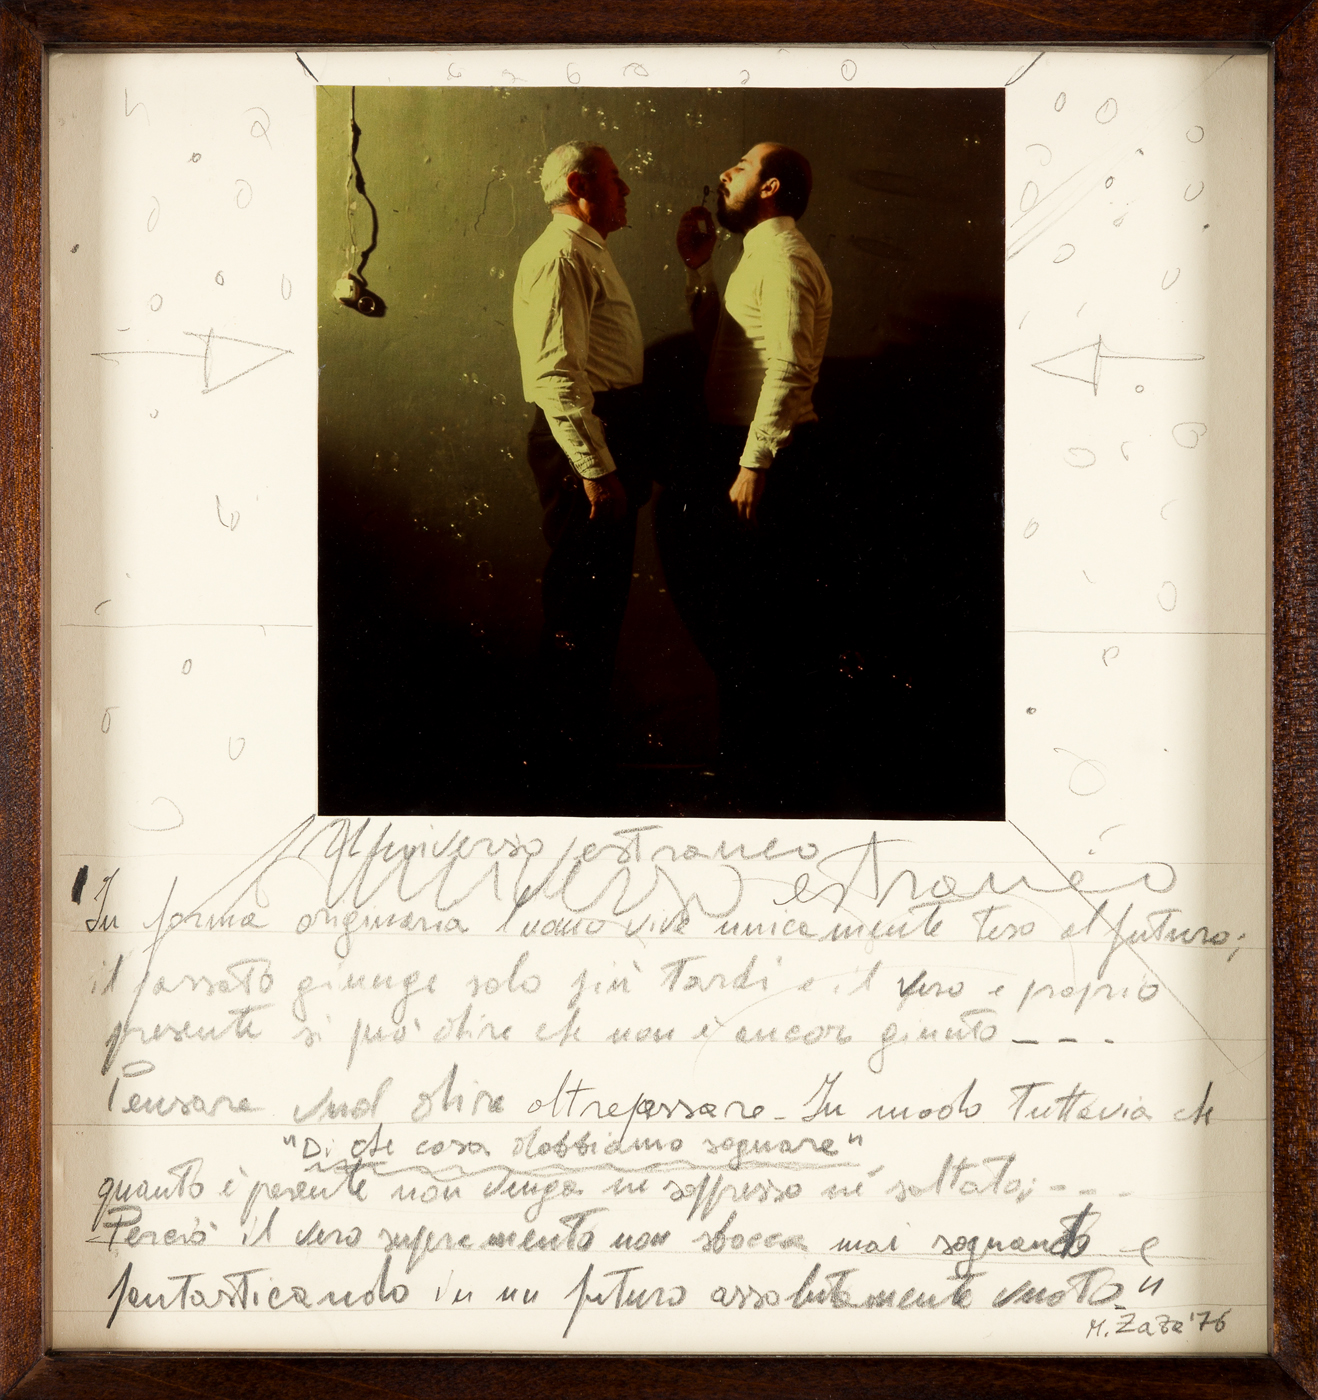 Universo estraneo
Universo estraneo
In forma originaria l'uomo vive unicamente teso al futuro;
il passato giunge solo più tardi e il vero e proprio
presente si può dire che non è ancor giunto - - -
Pensare vuol dire oltrepassare - In modo tuttavia che
"Di che cosa dobbiamo sognare"
quanto è presente non venga né soppresso né saltato; - - -
Perciò il vero superamento non sbocca mai sognando e
fantasticando in un futuro assolutamente vuoto."
M. Zaza '76